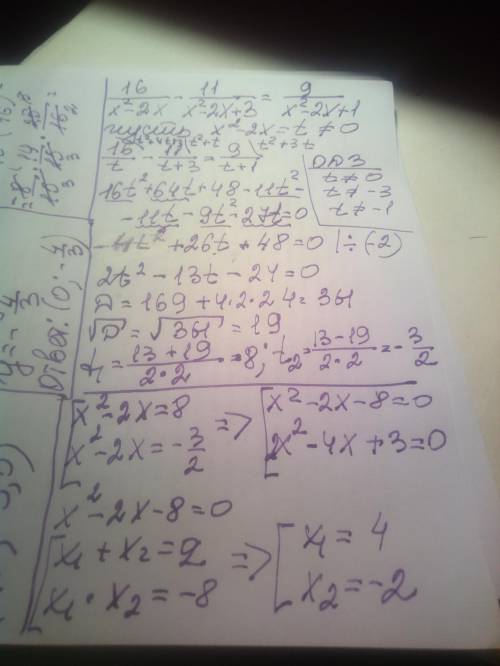 16/(x²-2x) - 11/(x²-2x+3) = 9/(x²-2x+1)
пусть x²-2x=t ≠0
16/t - 11/(t+3) = 9/(t+1)
t²+3t
ОДЗ
t≠0
t≠-3
t≠-1
16t²+64t+48-11t²-
-11t-9t²-27t=0
-4t²+26t+48=0 |÷(-2)
2t²-13t-24=0
D=169+4·2·24=361
√D=√361=19
t₁=(13+19)/(2·2)=8; t₂=(13-19)/(2·2)=-3/2
[x²-2x=8 => [x²-2x-8=0
[x²-2x=-3/2 [2x²-4x+3=0
x²-2x-8=0
[x₁+x₂=2 => [x₁=4
[x₁·x₂=-8 [x₂=-2
y=-4/3
Ответ: (0;-4/3)